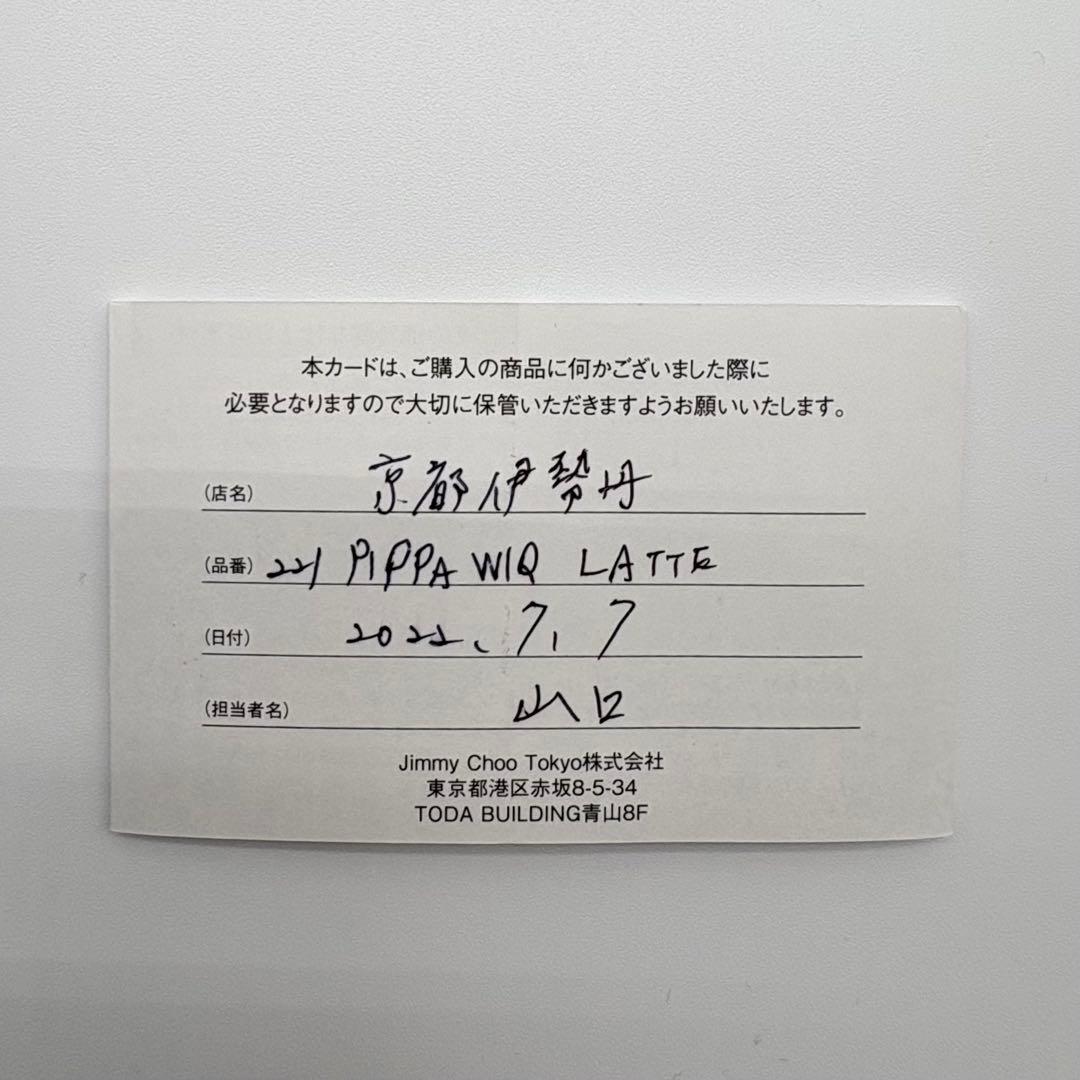 本カードは、ご購入の商品に何かございました際に
必要となりますので大切に保管いただきますようお願いいたします。
(店名) 京都伊勢丹
(品番) 221 PIPPA WIQ LATTE
(日付) 2022、7、7
(担当者名) 山口
Jimmy Choo Tokyo株式会社
東京都港区赤坂8-5-34
TODA BUILDING青山8F